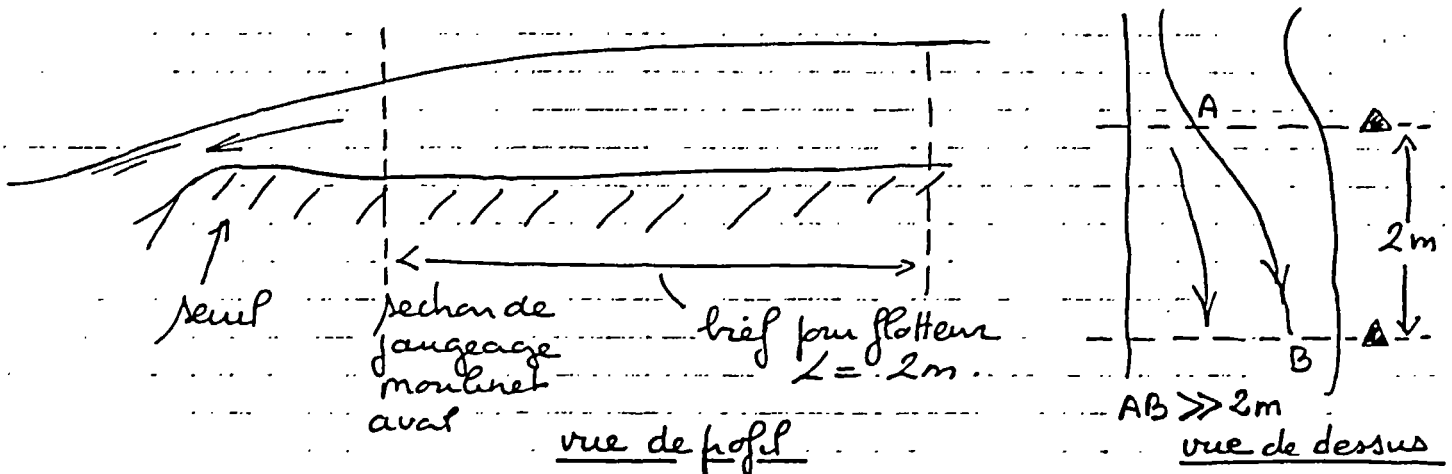 seuil
section de
jaugeage
moulinet
aval
bief pour flotteur
L = 2m.
vue de profil
A
2m
B
AB >> 2m
vue de dessus